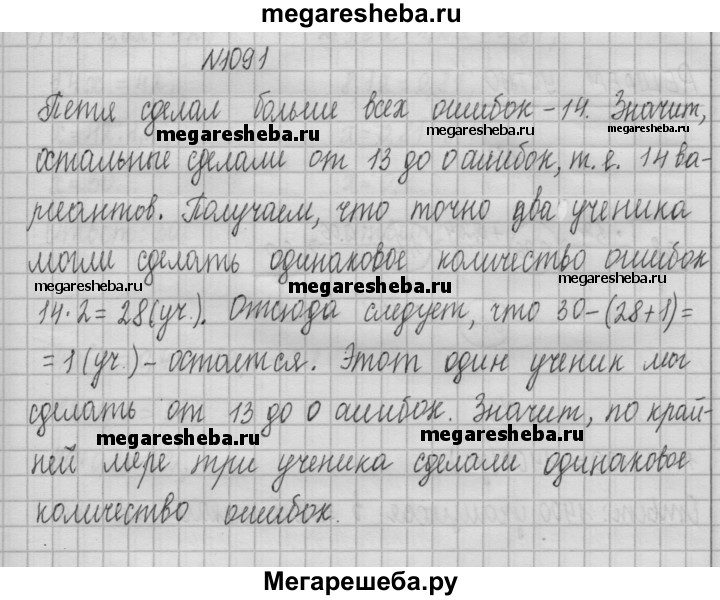 megaresheba.ru
N1091
Петя сделал больше всех ошибок – 14. Значит,
megaresheba.ru megaresheba.ru megaresheba.ru
остальные сделали от 13 до 0 ошибок, т. е. 14 ва-
риантов. Получаем, что точно два ученика
могли сделать одинаковое количество ошибок
megaresheba.ru megaresheba.ru megaresheba.ru
14·2=28(уч.). Отсюда следует, что 30-(28+1)=
=1(уч.) – остаётся. Этот один ученик мог
сделать от 13 до 0 ошибок. Значит, по край-
megaresheba.ru megaresheba.ru
ней мере три ученика сделали одинаковое
количество ошибок.
Мегарешеба.ру